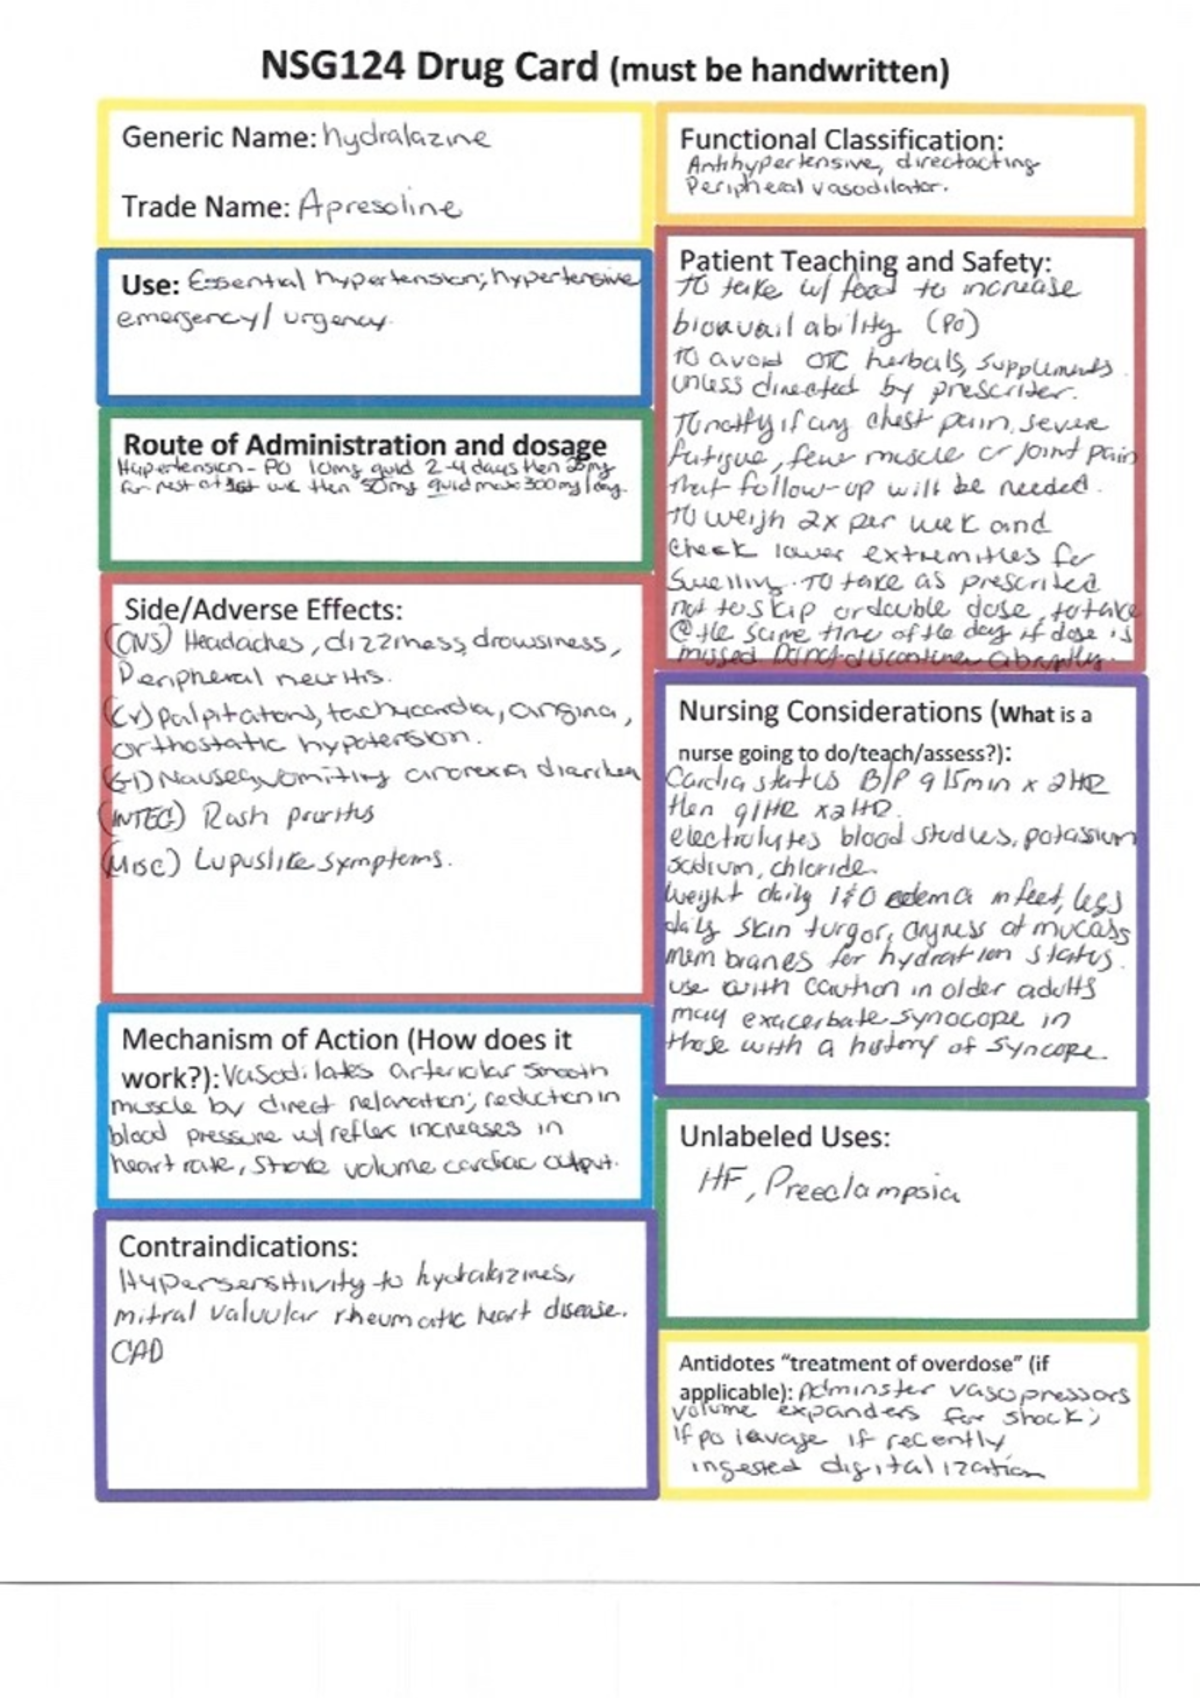 NSG124 Drug Card (must be handwritten)
Generic Name: hydralazine
Trade Name: Apresoline
Use: Essential hypertension; hypertensive
emergency/ urgency.
Route of Administration and dosage
Hypertension - PO 10mg quid 2-4 days then 25mg
for rest of 1st wk then 50mg quid max 300mg/day.
Side/Adverse Effects:
(CNS) Headaches, dizziness, drowsiness,
Peripheral neuritis.
(CV) palpitations, tachycardia, angina,
orthostatic hypotension.
(GI) Nausea, vomiting anorexia diarrhea
(INTEG) Rash pruritus
(Misc) Lupuslike symptoms.
Mechanism of Action (How does it
work?): Vasodilates arteriolar smooth
muscle by direct relaxation; reduction in
blood pressure w/ reflex increases in
heart rate, stroke volume cardiac output.
Contraindications:
Hypersensitivity to hydralazines,
mitral valvular rheumatic heart disease.
CAD
Functional Classification:
Antihypertensive, directacting
Peripheral vasodilator.
Patient Teaching and Safety:
To take w/ food to increase
bioavailability (PO)
To avoid OTC herbals, supplements
unless directed by prescriber.
To notify if any chest pain, severe
fatigue, fever muscle or joint pain
that follow-up will be needed.
To weigh 2x per week and
check lower extremities for
swelling. To take as prescribed
not to skip or double dose, to take
@ the same time of the day if dose is
missed. Do not discontinue abruptly.
Nursing Considerations (What is a
nurse going to do/teach/assess?):
Cardia status B/P q 15min x 2HR
then q/HR x2HR.
electrolytes blood studies, potassium
sodium, chloride.
Weight daily I&O edema in feet, legs
daily skin turgor, dryness of mucass
membranes for hydration status.
use with caution in older adults
may exacerbate synocope in
those with a history of syncope.
Unlabeled Uses:
HF, Preeclampsia
Antidotes “treatment of overdose” (if
applicable): Adminster vasopressors
volume expanders for shock;
if po lavage if recently
ingested digitalization